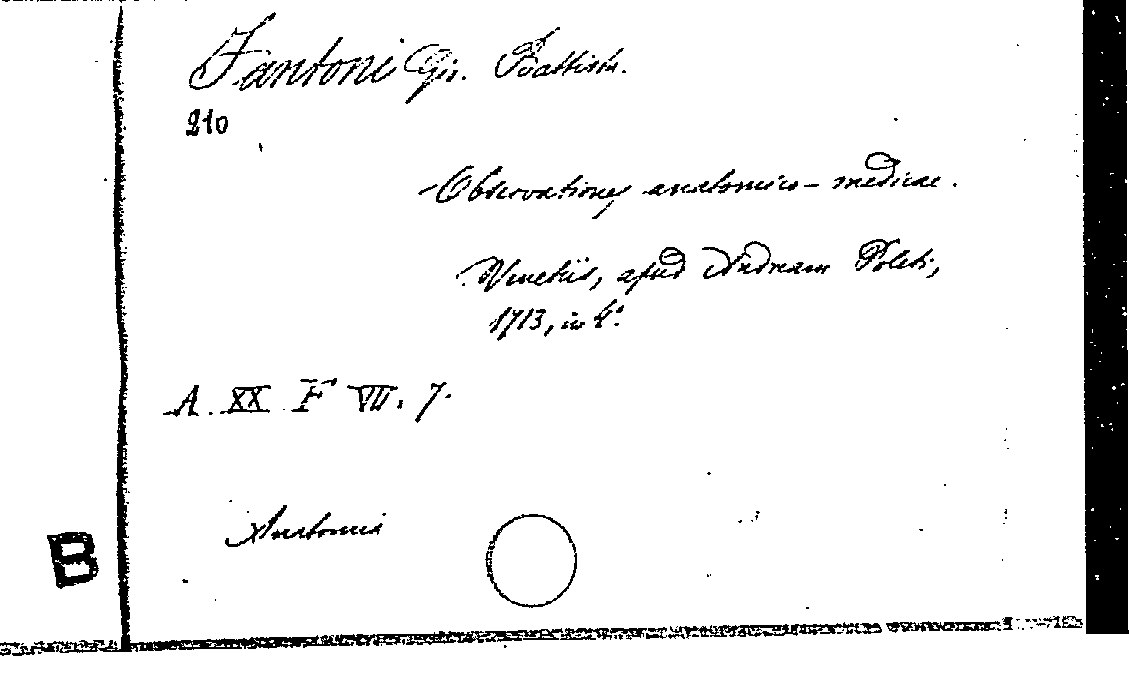 Fantoni Gio. Battista.
210
Observationes anatomico-medicae.
Venetiis, apud Andream Poleti,
1713, in 4°.
A. XX F VII. 7.
Anatomia
B